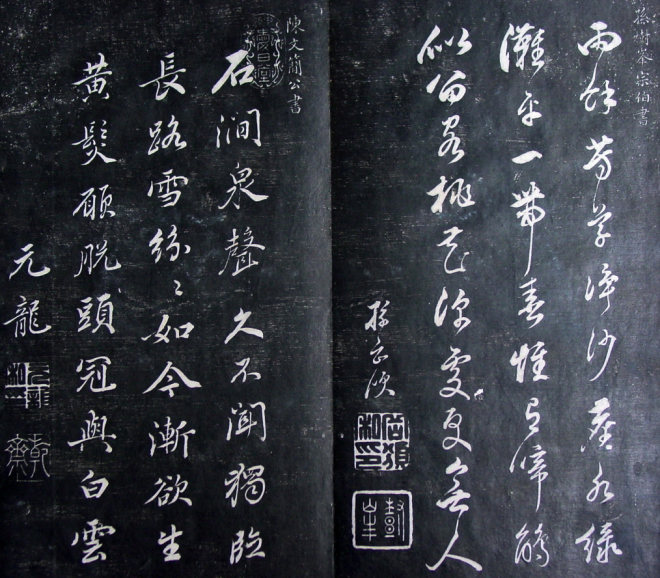 孫樹峯宗伯書
雨餘芳草淨沙塵水綠
灘平一帶春惟有啼鵑
似留客桃花深處更無人
孫岳頒
陳文簡公書
石澗泉聲久不聞獨臨
長路雪紛〻如今漸欲生
黃髮願脫頭冠與白雲
元龍